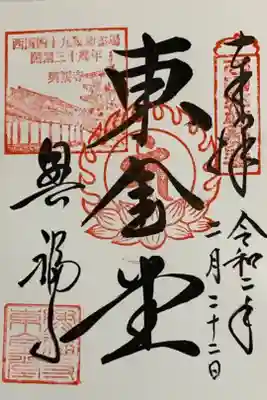 奉拝
令和二年
二月二十二日
東金堂
西国四十九薬師霊場
開創三十周年
興福寺
興福寺